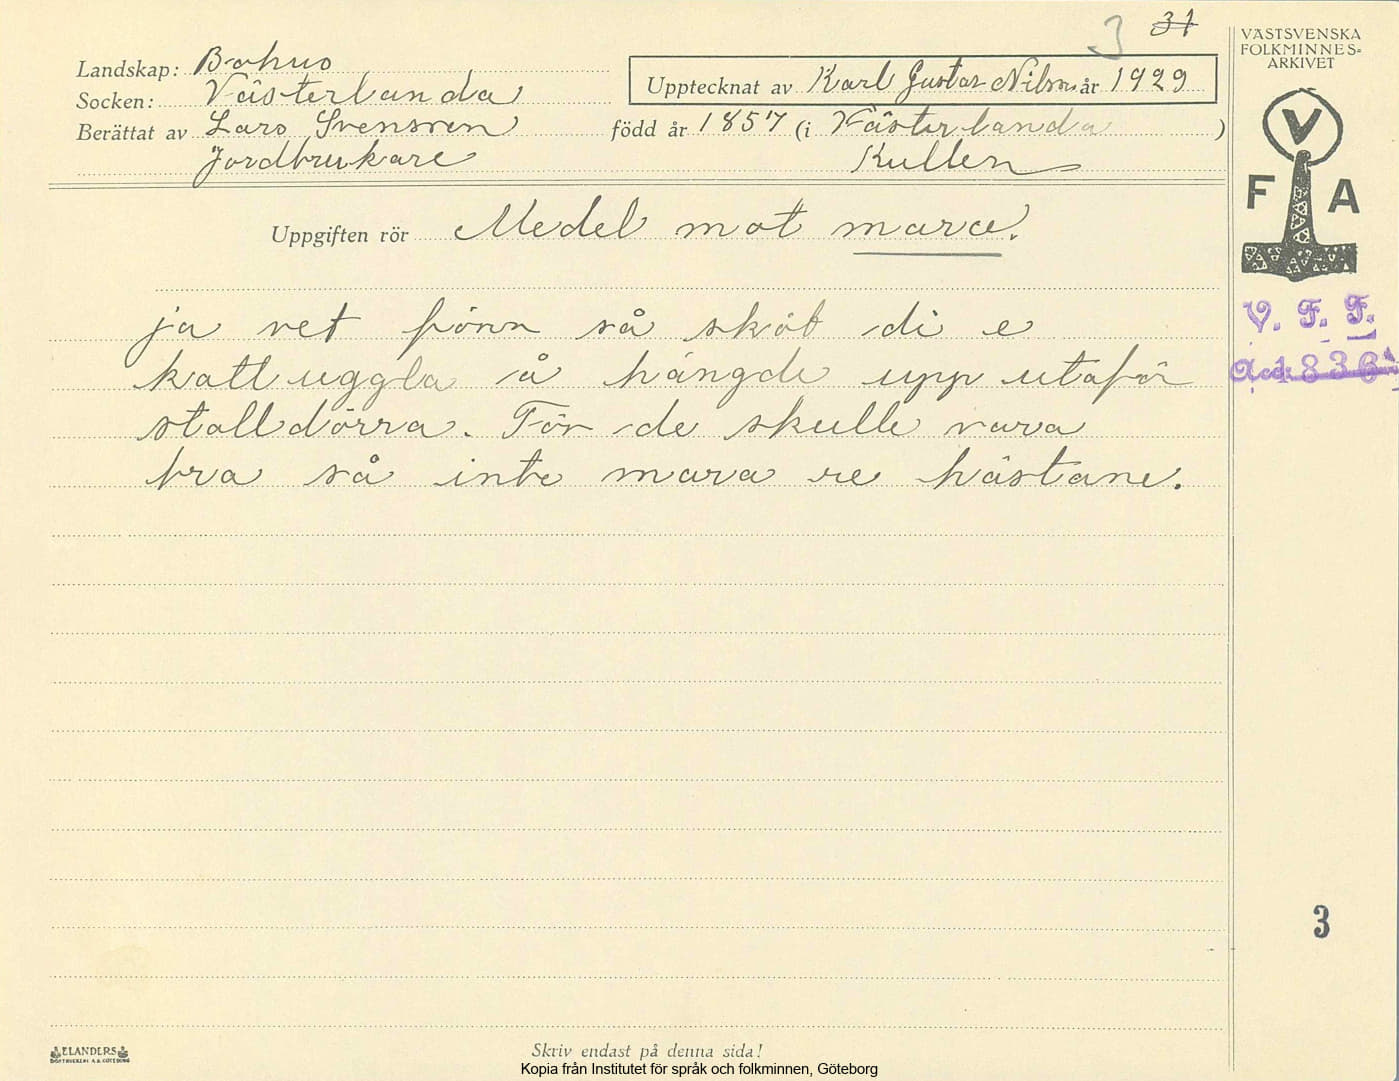 3 31
Landskap: Bohus
Socken: Västerlanda
Berättat av Lars Svensson
Jordbrukare
Upptecknat av Karl Gustav Nilson år 1929
född år 1857 (i Västerlanda)
Kullen
Uppgiften rör Medel mot mara.
ja vet förr så sköt di e
kattuggla å hängde upp utaför
stalldörra. För de skulle vara
bra så inte mara re hästane.
VÄSTSVENSKA
FOLKMINNES=
ARKIVET
V
F A
V. F. F.
Acc. 1836
3
ELANDERS
BOKTRYCKERI A.B. GÖTEBORG
Skriv endast på denna sida!
Kopia från Institutet för språk och folkminnen, Göteborg